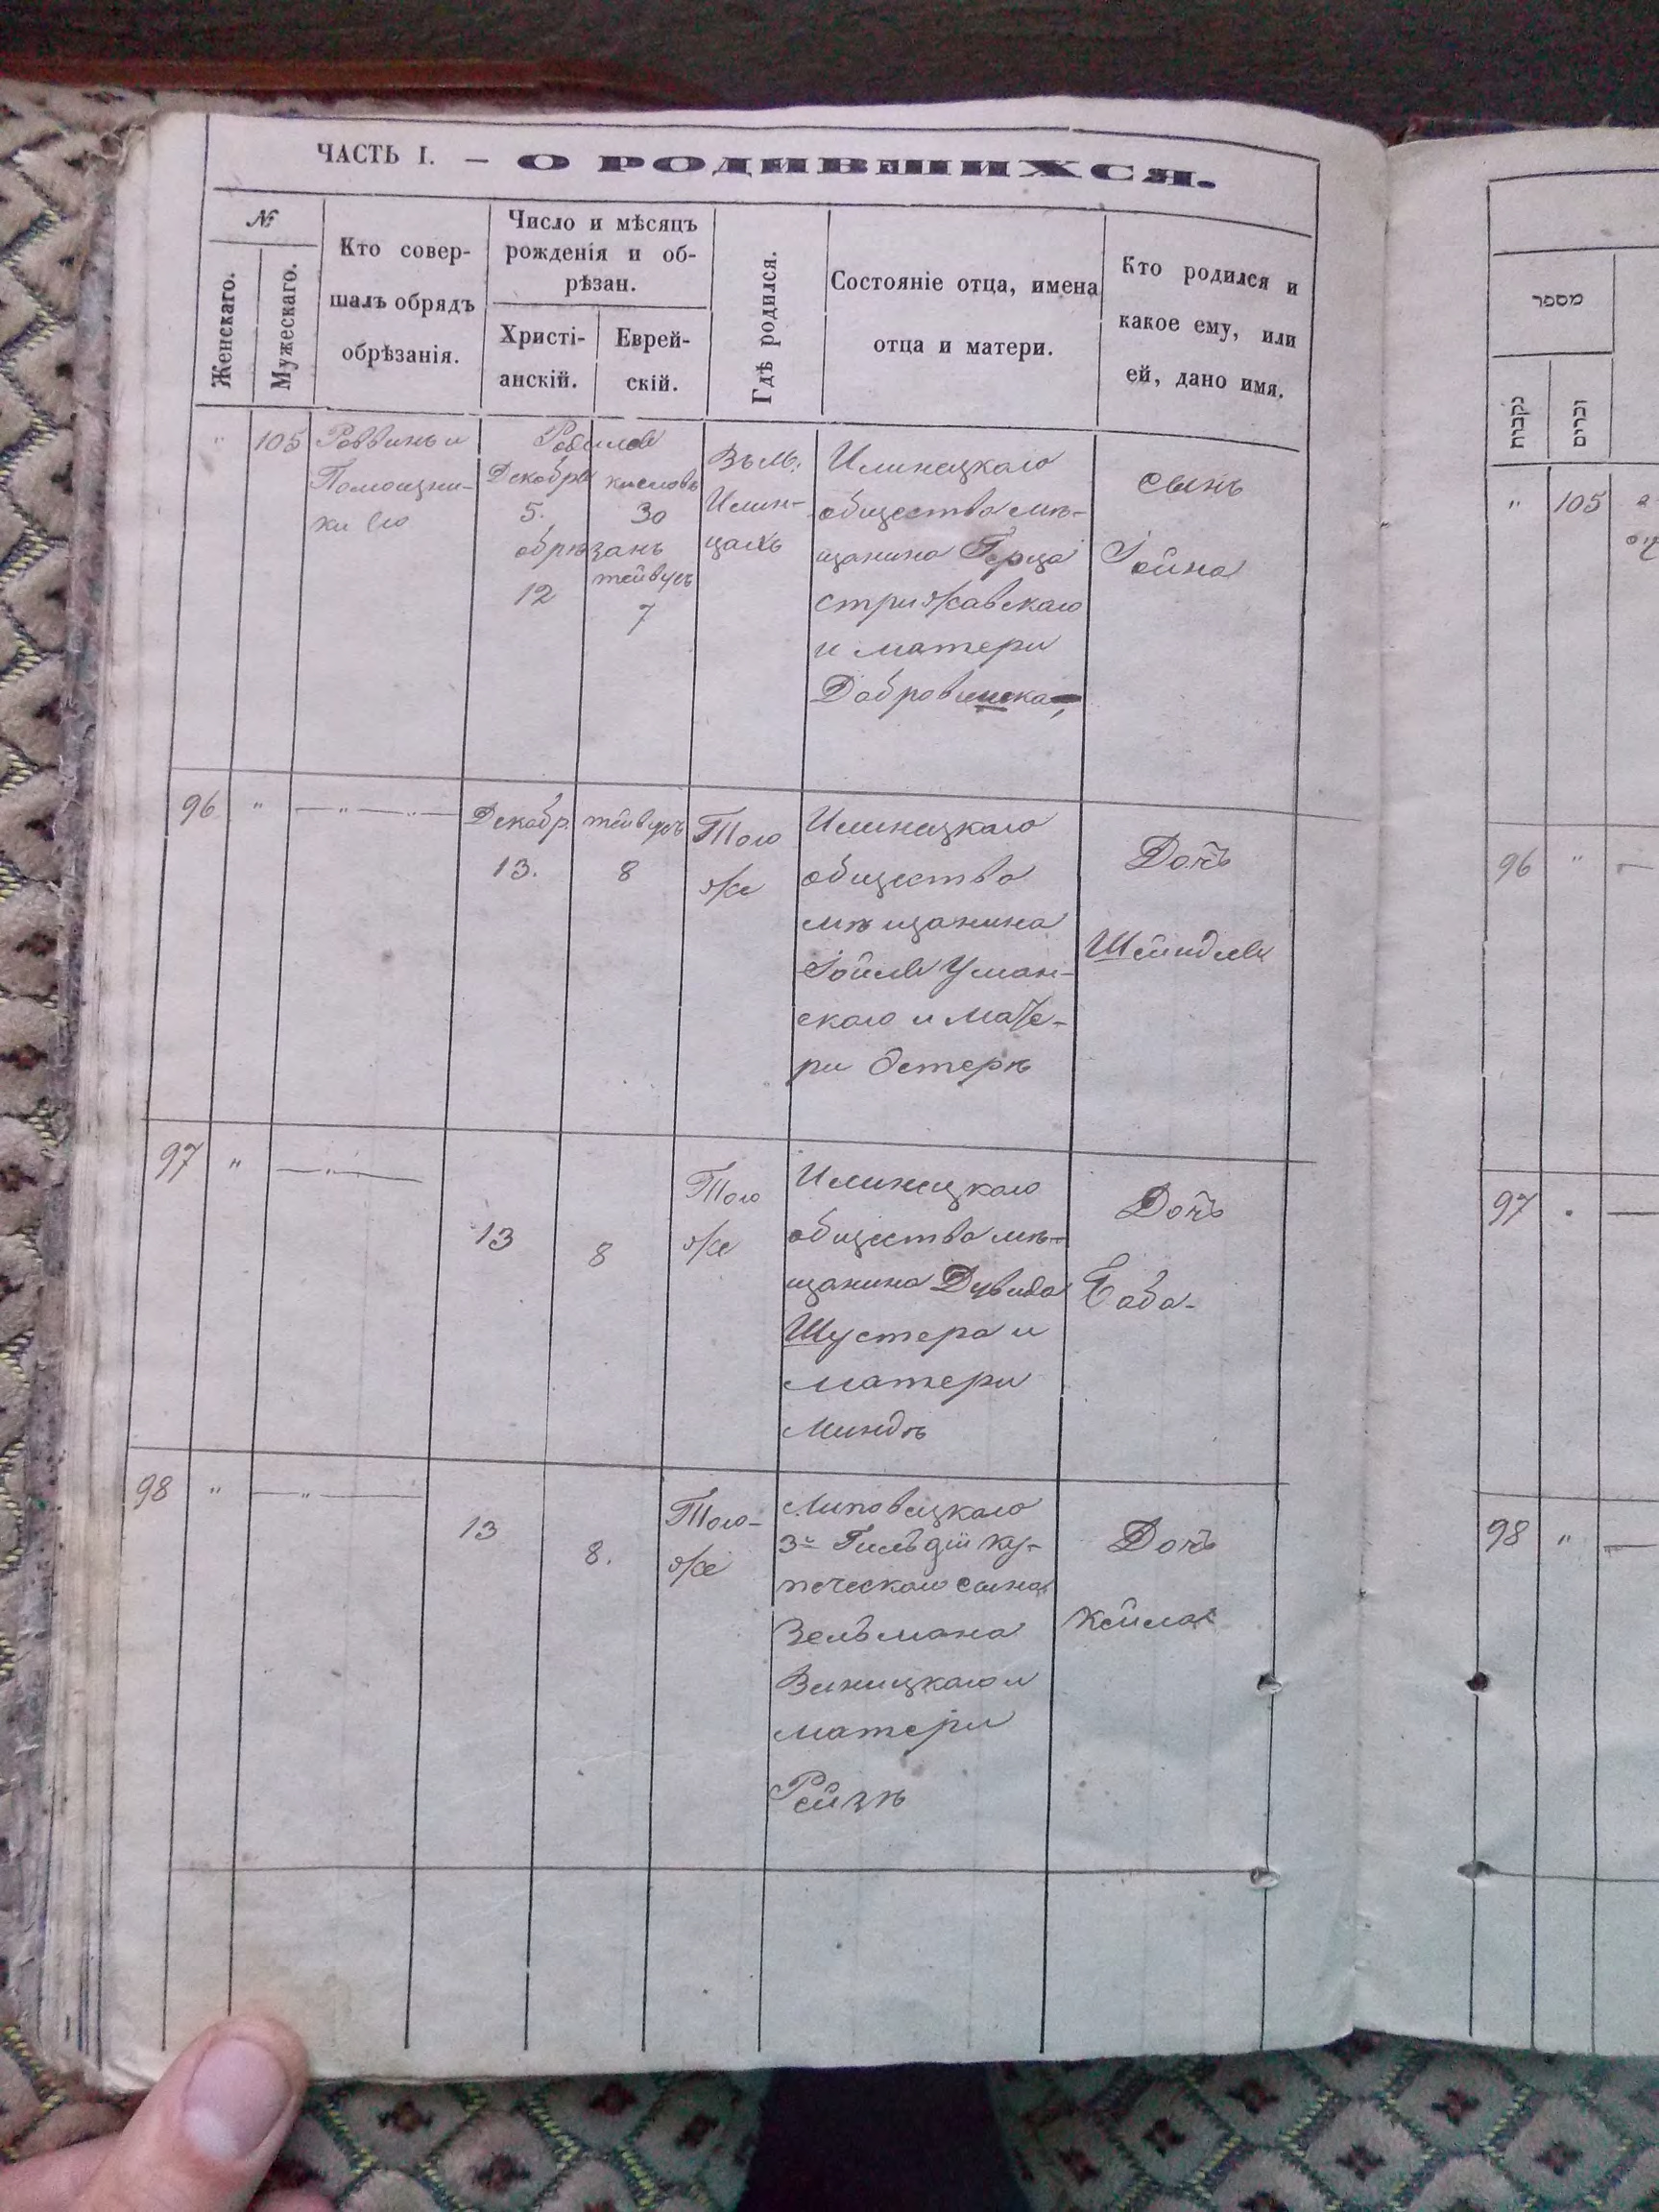 ЧАСТЬ I. — О РОДИВШИХСЯ.
№
Женскаго.
Мужескаго.
Кто совер-
шалъ обрядъ
обрѣзанія.
Число и мѣсяцъ
рожденія и об-
рѣзан.
Христі-
анскій.
Еврей-
скій.
Гдѣ родился.
Состояніе отца, имена
отца и матери.
Кто родился и
какое ему, или
ей, дано имя.
"
105
Раввинъ и
Помощни-
ки его
Родился
Декабря
5.
кислевъ
30
обрѣзанъ
12
тейвусъ
7
Въ м.
Илин-
цахъ
Илинецкаго
общества мѣ-
щанина Герца
Стрижавскаго
и матери
Добровишка
Сынъ
Іойна
96
"
— " —
Декабр.
13.
тейвусъ
8
Того
же
Илинецкаго
общества
мѣщанина
Іойля Уман-
скаго и мате-
ри Эстеръ
Дочь
Шейндля
97
"
— " —
13
8
Того
же
Илинецкаго
общества мѣ-
щанина Дувида
Шустера и
матери
Миндъ
Дочь
Баба
98
"
— " —
13
8.
Того-
же
Липовецкаго
3й Гильдіи ку-
печескаго сына
Зельмана
Виницкаго и
матери
Рейзъ
Дочь
Кейла
מספר
נקבות
זכרים
"
105
96
"
97
98
"